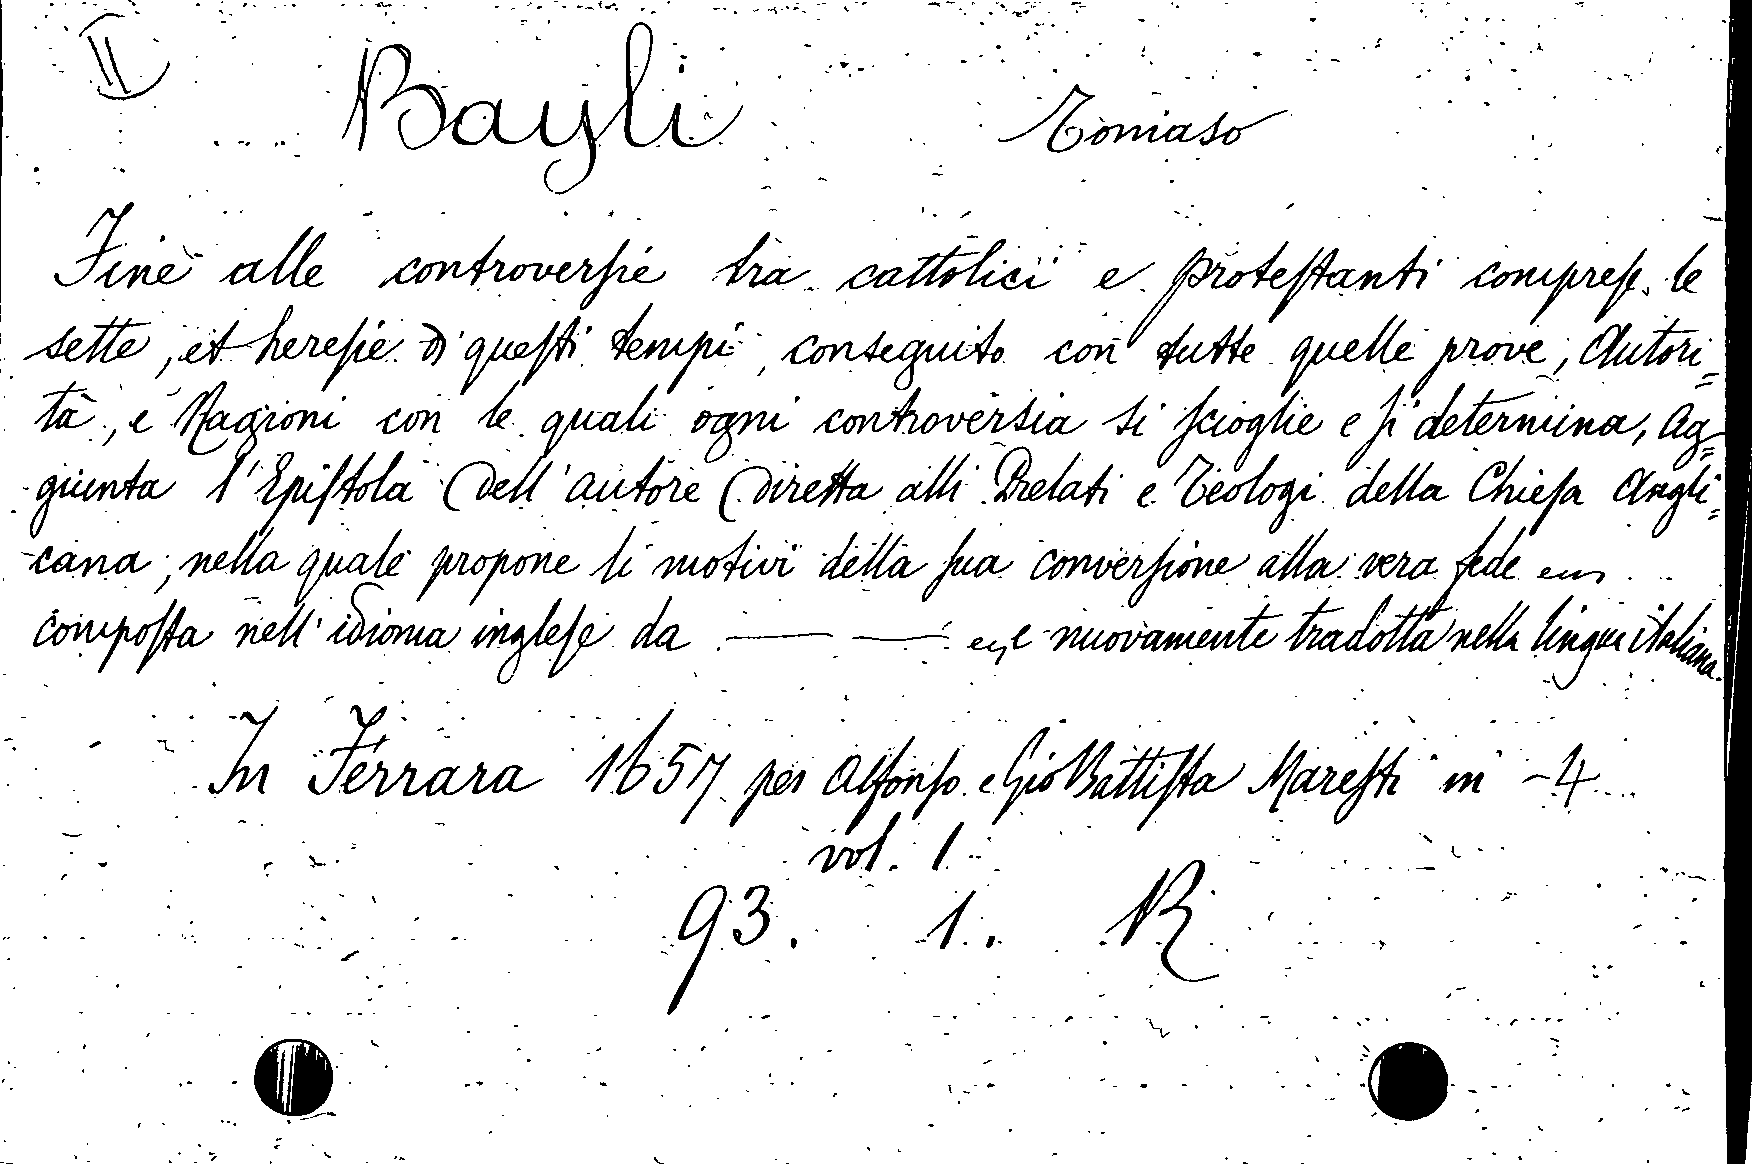 II
Bayli Tomaso
Fine alle controversie tra cattolici e protestanti comprese le
sette, et heresie di questi tempi, conseguito con tutte quelle prove, Autori=
tà, e Ragioni con le quali ogni controversia si scioglie e si determina, Ag=
giunta l'Epistola dell'autore diretta alli Prelati e Teologi della Chiesa Angli=
cana, nella quale propone li motivi della sua conversione alla vera fede
composta nell'idioma inglese da — — e nuovamente tradotta nella lingua italiana.
In Ferrara 1657 per Alfonso e Gio Battista Maresti in -4
vol. 1
93. 1. R